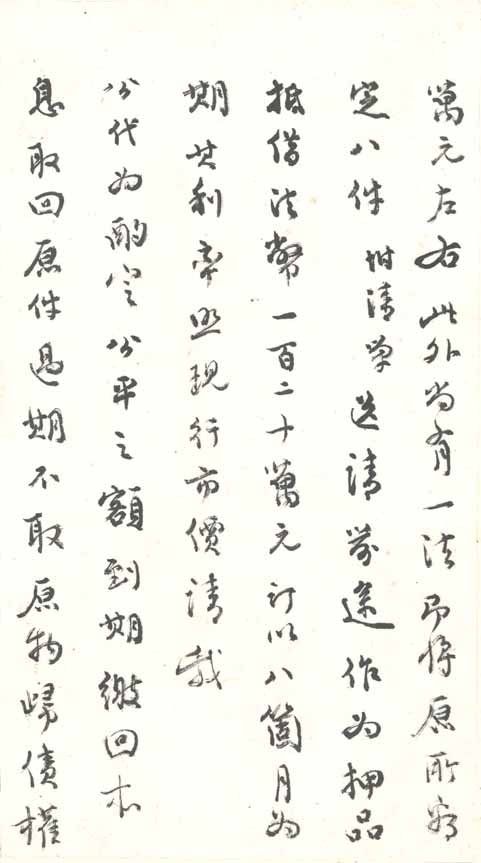 萬元左右此外尚有一法即將原所寄
定八件附清單送請蒙達作为押品
抵借法幣一百二十萬元訂以八箇月为
期其利率照現行市價請我
公代为酌定公平之額到期繳回本
息取回原件過期不取原物歸債權